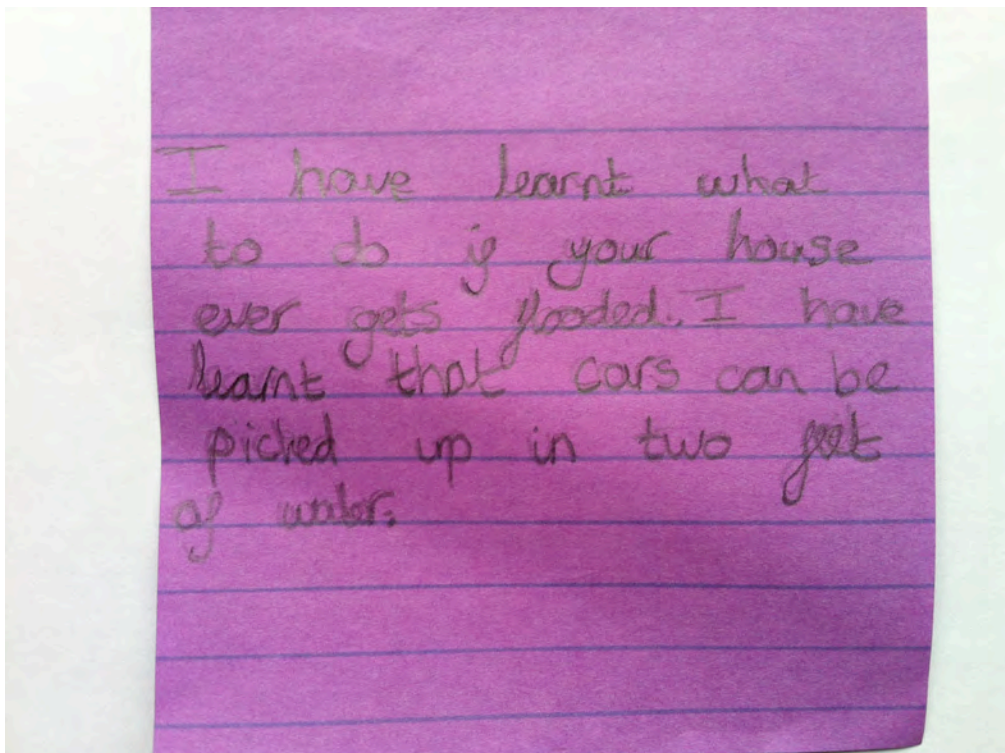 I have learnt what
to do if your house
ever gets flooded. I have
learnt that cars can be
picked up in two feet
of water.